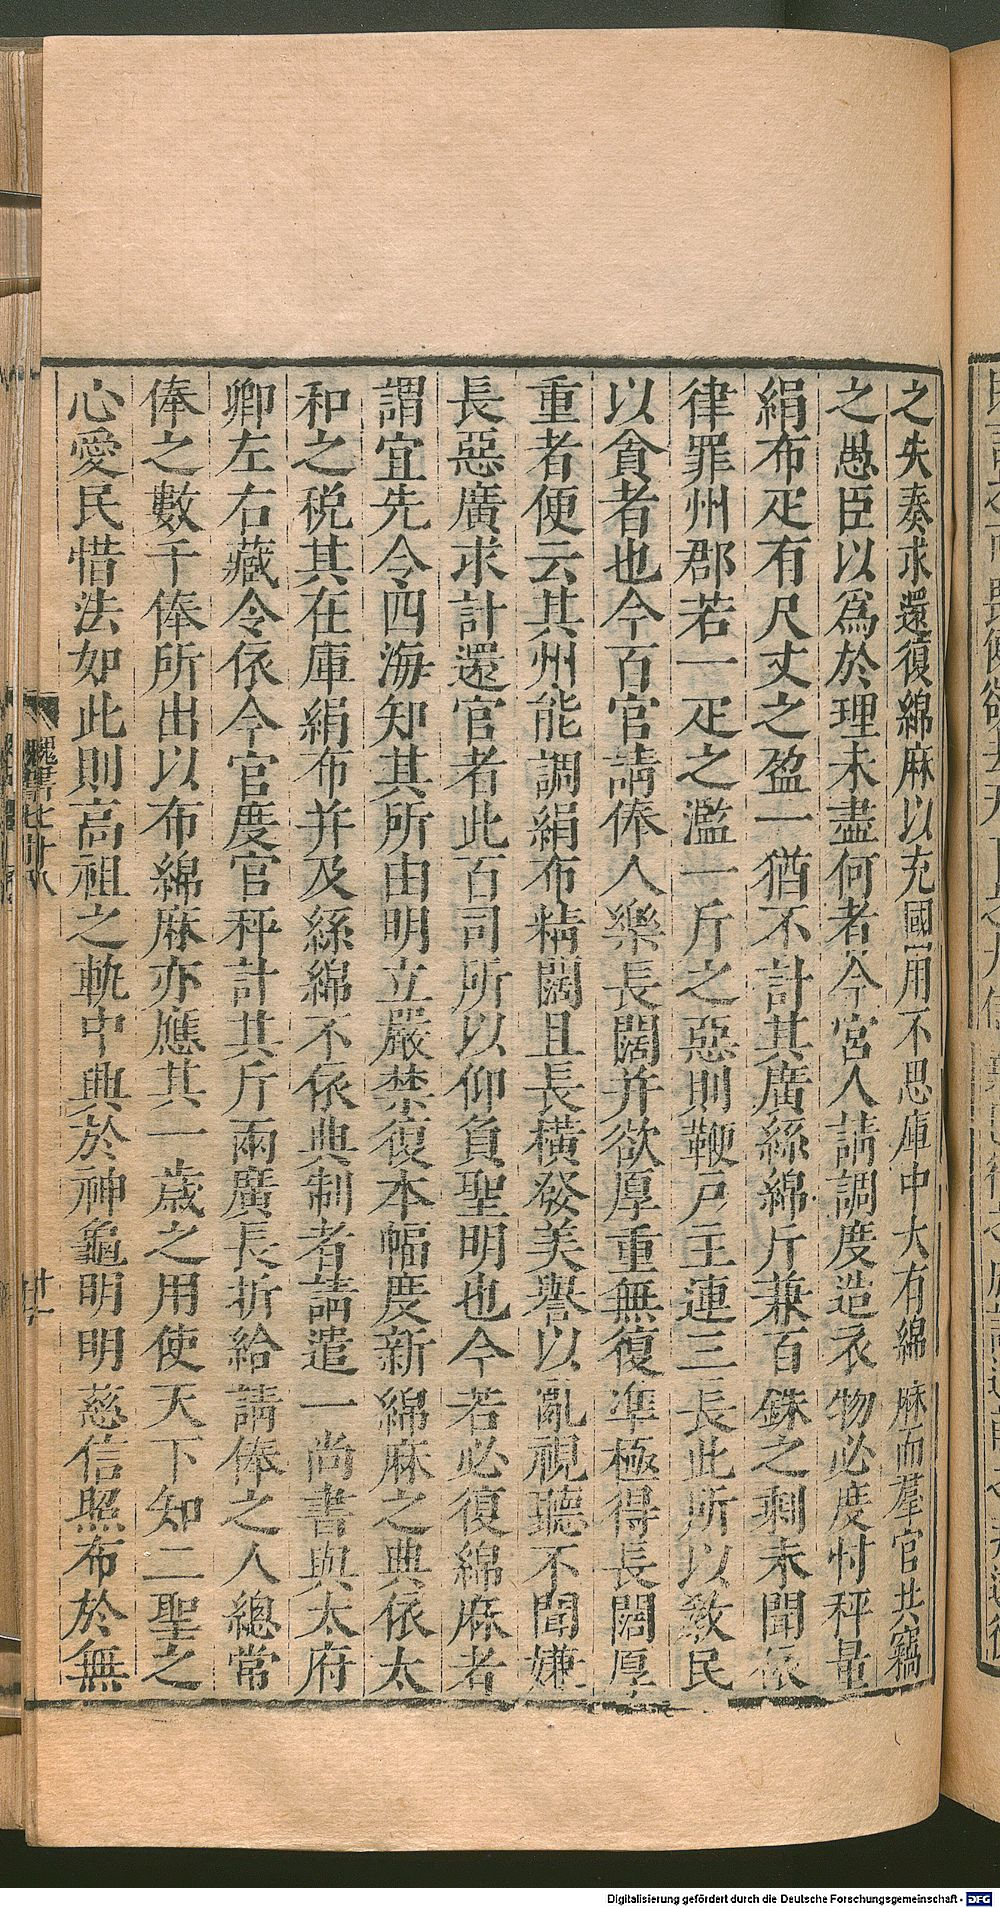 之失奏求還復綿麻以充國用不思庫中大有綿麻而羣官共竊
之愚臣以爲於理未盡何者今宮人請調度造衣物必度忖秤量
絹布疋有尺丈之盈一猶不計其廣絲綿斤兼百銖之剩未聞依
律罪州郡若一疋之濫一斤之惡則鞭戸主連三長此所以教民
以貪者也今百官請俸人樂長闊并欲厚重無復準極得長闊厚
重者便云其州能調絹布精闊且長橫發美譽以亂視聽不聞嫌
長惡廣求計還官者此百司所以仰負聖明也今若必復綿麻者
謂宜先令四海知其所由明立嚴禁復本幅度新綿麻之典依太
和之税其在庫絹布并及絲綿不依典制者請遣一尚書與太府
卿左右藏令依今官度官秤計其斤兩廣長折給請俸之人總常
俸之數千俸所出以布綿麻亦應其一歳之用使天下知二聖之
心愛民惜法如此則高祖之軌中興於神龜明明慈信照布於無
魏書七十八
Digitalisierung gefördert durch die Deutsche Forschungsgemeinschaft - DFG